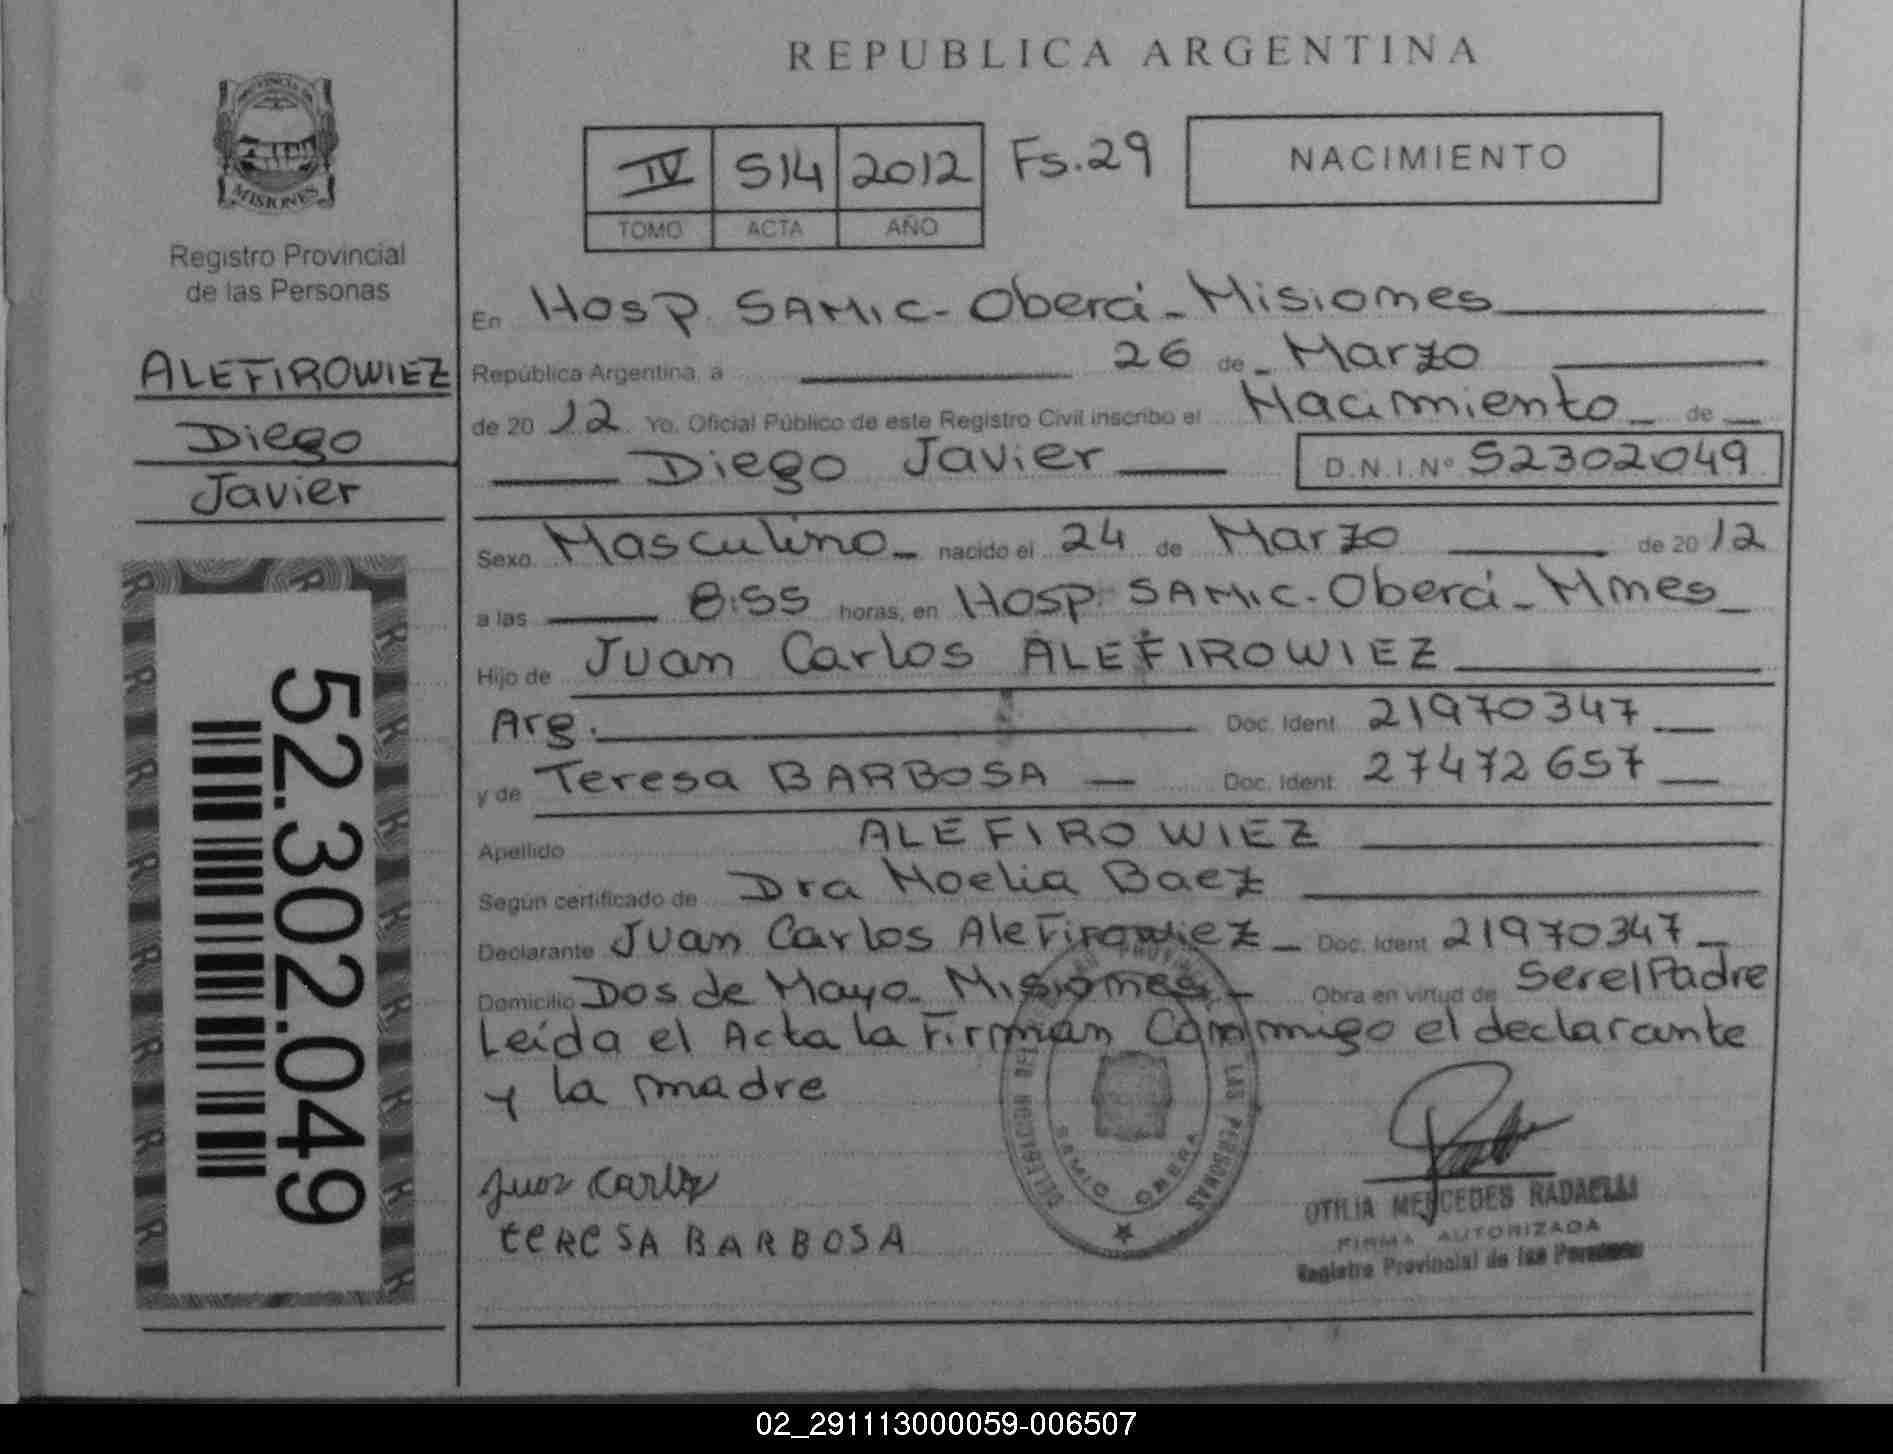 REPUBLICA ARGENTINA
MISIONES
Registro Provincial
de las Personas
ALEFIROWIEZ
Diego
Javier
52.302.049
IV 514 2012 Fs.29
TOMO ACTA AÑO
NACIMIENTO
En Hosp. SAMIC - Oberá - Misiones
República Argentina, a 26 de Marzo
de 2012 Yo, Oficial Público de este Registro Civil inscribo el Nacimiento de
Diego Javier D.N.I.Nº 52302049
Sexo Masculino nacido el 24 de Marzo de 2012
a las 8:55 horas, en Hosp. SAMIC - Oberá - Mnes
Hijo de Juan Carlos ALEFIROWIEZ
Arg. Doc. Ident. 21970347
y de Teresa BARBOSA Doc. Ident. 27472657
Apellido ALEFIROWIEZ
Según certificado de Dra Noelia Baez
Declarante Juan Carlos Alefirowiez Doc. Ident. 21970347
Domicilio Dos de Mayo - Misiones Obra en virtud de Ser el Padre
Leída el Acta la Firman Conmigo el declarante
y la madre
Juan Carlos
TERESA BARBOSA
LAS PERSONAS
OBERA
OTILIA MERCEDES RADAELLI
FIRMA AUTORIZADA
Registro Provincial de las Personas
02_291113000059-006507